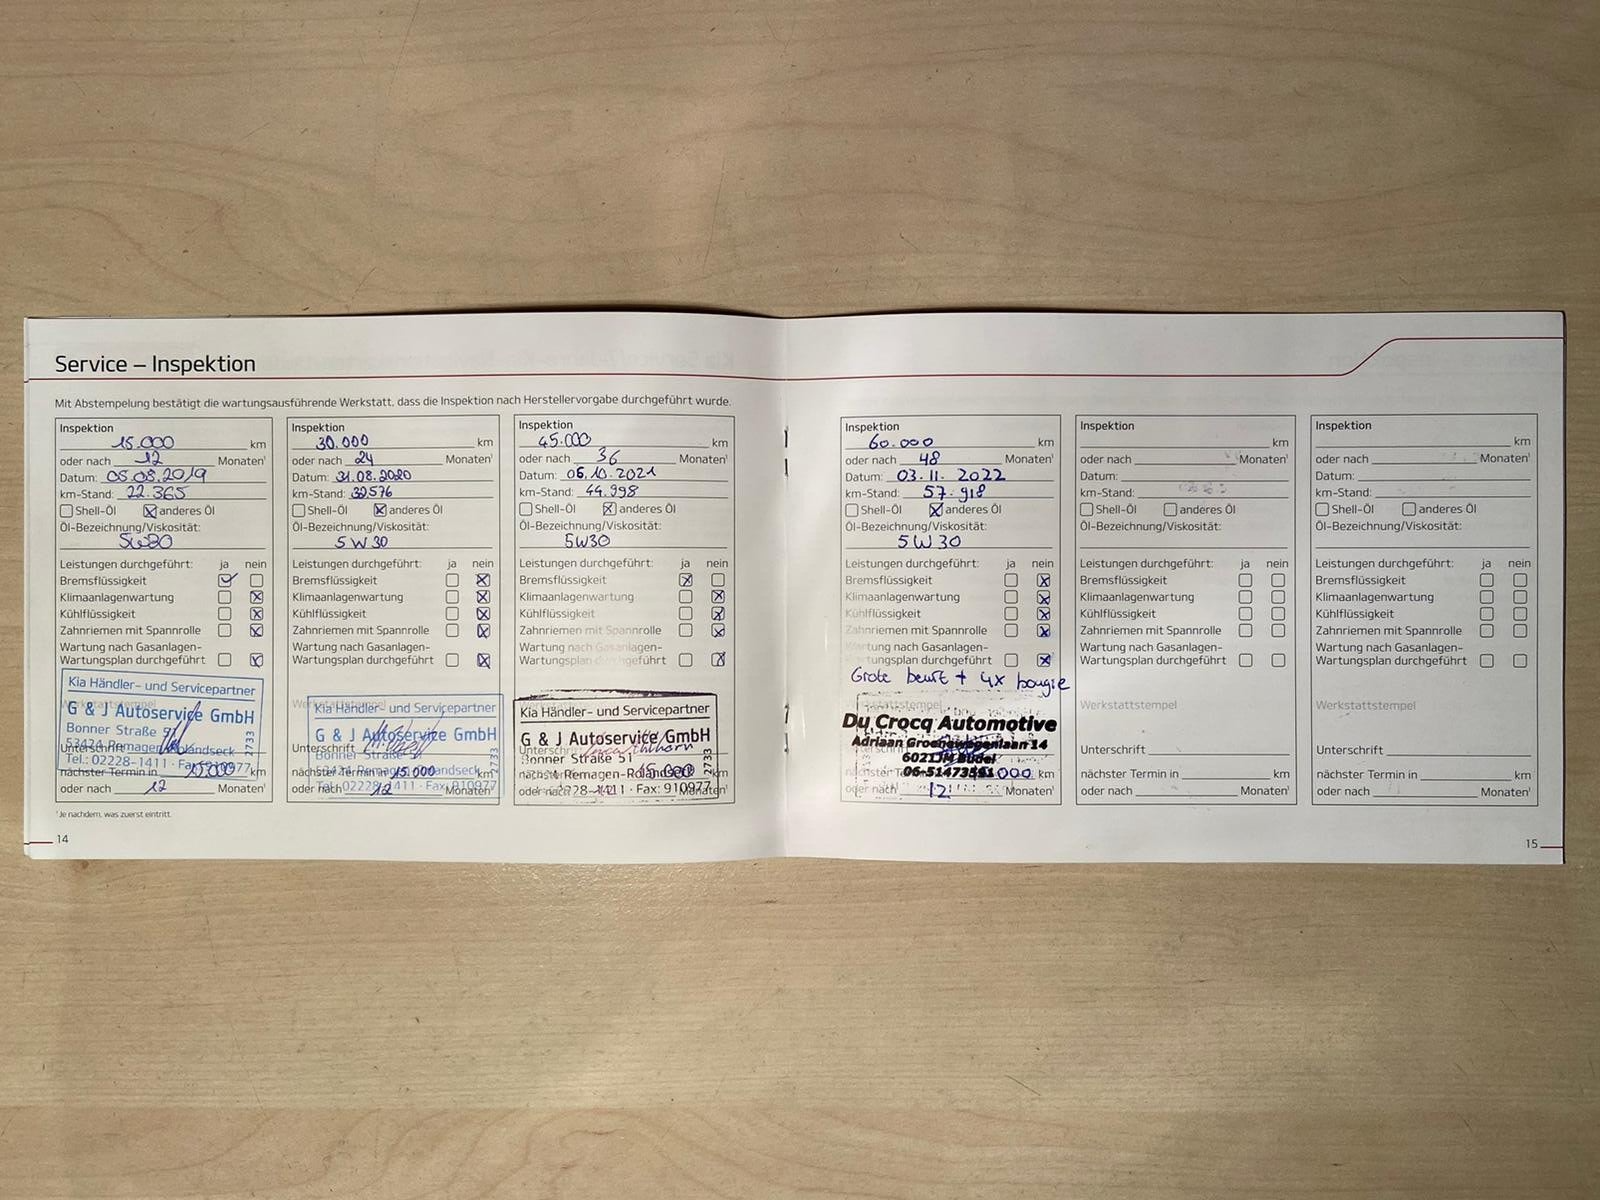 Service – Inspektion
Mit Abstempelung bestätigt die wartungsausführende Werkstatt, dass die Inspektion nach Herstellervorgabe durchgeführt wurde.
Inspektion
15.000 km
oder nach 12 Monaten¹
Datum: 05.08.2019
km-Stand: 22.365
Shell-Öl anderes Öl
Öl-Bezeichnung/Viskosität:
5W30
Leistungen durchgeführt: ja nein
Bremsflüssigkeit
Klimaanlagenwartung
Kühlflüssigkeit
Zahnriemen mit Spannrolle
Wartung nach Gasanlagen-
Wartungsplan durchgeführt
Kia Händler- und Servicepartner
G & J Autoservice GmbH
Bonner Straße 51
53424 Remagen-Rolandseck
Unterschrift
Tel.: 02228-1411 · Fax: 910977
2733
nächster Termin in km
oder nach 12 Monaten¹
Inspektion
30.000 km
oder nach 24 Monaten¹
Datum: 31.08.2020
km-Stand: 30.576
Shell-Öl anderes Öl
Öl-Bezeichnung/Viskosität:
5W30
Leistungen durchgeführt: ja nein
Bremsflüssigkeit
Klimaanlagenwartung
Kühlflüssigkeit
Zahnriemen mit Spannrolle
Wartung nach Gasanlagen-
Wartungsplan durchgeführt
Werkstattstempel
Kia Händler- und Servicepartner
G & J Autoservice GmbH
Unterschrift
Bonner Straße 51
53424 Remagen-Rolandseck
nächster Termin in 15.000 km
Tel.: 02228-1411 · Fax: 910977
2733
oder nach 12 Monaten¹
Inspektion
45.000 km
oder nach 36 Monaten¹
Datum: 06.10.2021
km-Stand: 44.998
Shell-Öl anderes Öl
Öl-Bezeichnung/Viskosität:
5W30
Leistungen durchgeführt: ja nein
Bremsflüssigkeit
Klimaanlagenwartung
Kühlflüssigkeit
Zahnriemen mit Spannrolle
Wartung nach Gasanlagen-
Wartungsplan durchgeführt
Kia Händler- und Servicepartner
G & J Autoservice GmbH
Unterschrift
Bonner Straße 51
Remagen-Rolandseck
nächster Termin in 15.000 km
02228-1411 · Fax: 910977
2733
oder nach 12 Monaten¹
¹Je nachdem, was zuerst eintritt.
14
Inspektion
60.000 km
oder nach 48 Monaten¹
Datum: 03.11.2022
km-Stand: 57.918
Shell-Öl anderes Öl
Öl-Bezeichnung/Viskosität:
5W30
Leistungen durchgeführt: ja nein
Bremsflüssigkeit
Klimaanlagenwartung
Kühlflüssigkeit
Zahnriemen mit Spannrolle
Wartung nach Gasanlagen-
Wartungsplan durchgeführt
Grote beurt + 4x bougie
Du Crocq Automotive
Adriaan Groenewegenlaan 14
6021JM Budel
06-51473591
nächster Termin in km
oder nach 12 Monaten¹
Inspektion
km
oder nach Monaten¹
Datum:
km-Stand:
Shell-Öl anderes Öl
Öl-Bezeichnung/Viskosität:
Leistungen durchgeführt: ja nein
Bremsflüssigkeit
Klimaanlagenwartung
Kühlflüssigkeit
Zahnriemen mit Spannrolle
Wartung nach Gasanlagen-
Wartungsplan durchgeführt
Werkstattstempel
Unterschrift
nächster Termin in km
oder nach Monaten¹
Inspektion
km
oder nach Monaten¹
Datum:
km-Stand:
Shell-Öl anderes Öl
Öl-Bezeichnung/Viskosität:
Leistungen durchgeführt: ja nein
Bremsflüssigkeit
Klimaanlagenwartung
Kühlflüssigkeit
Zahnriemen mit Spannrolle
Wartung nach Gasanlagen-
Wartungsplan durchgeführt
Werkstattstempel
Unterschrift
nächster Termin in km
oder nach Monaten¹
15